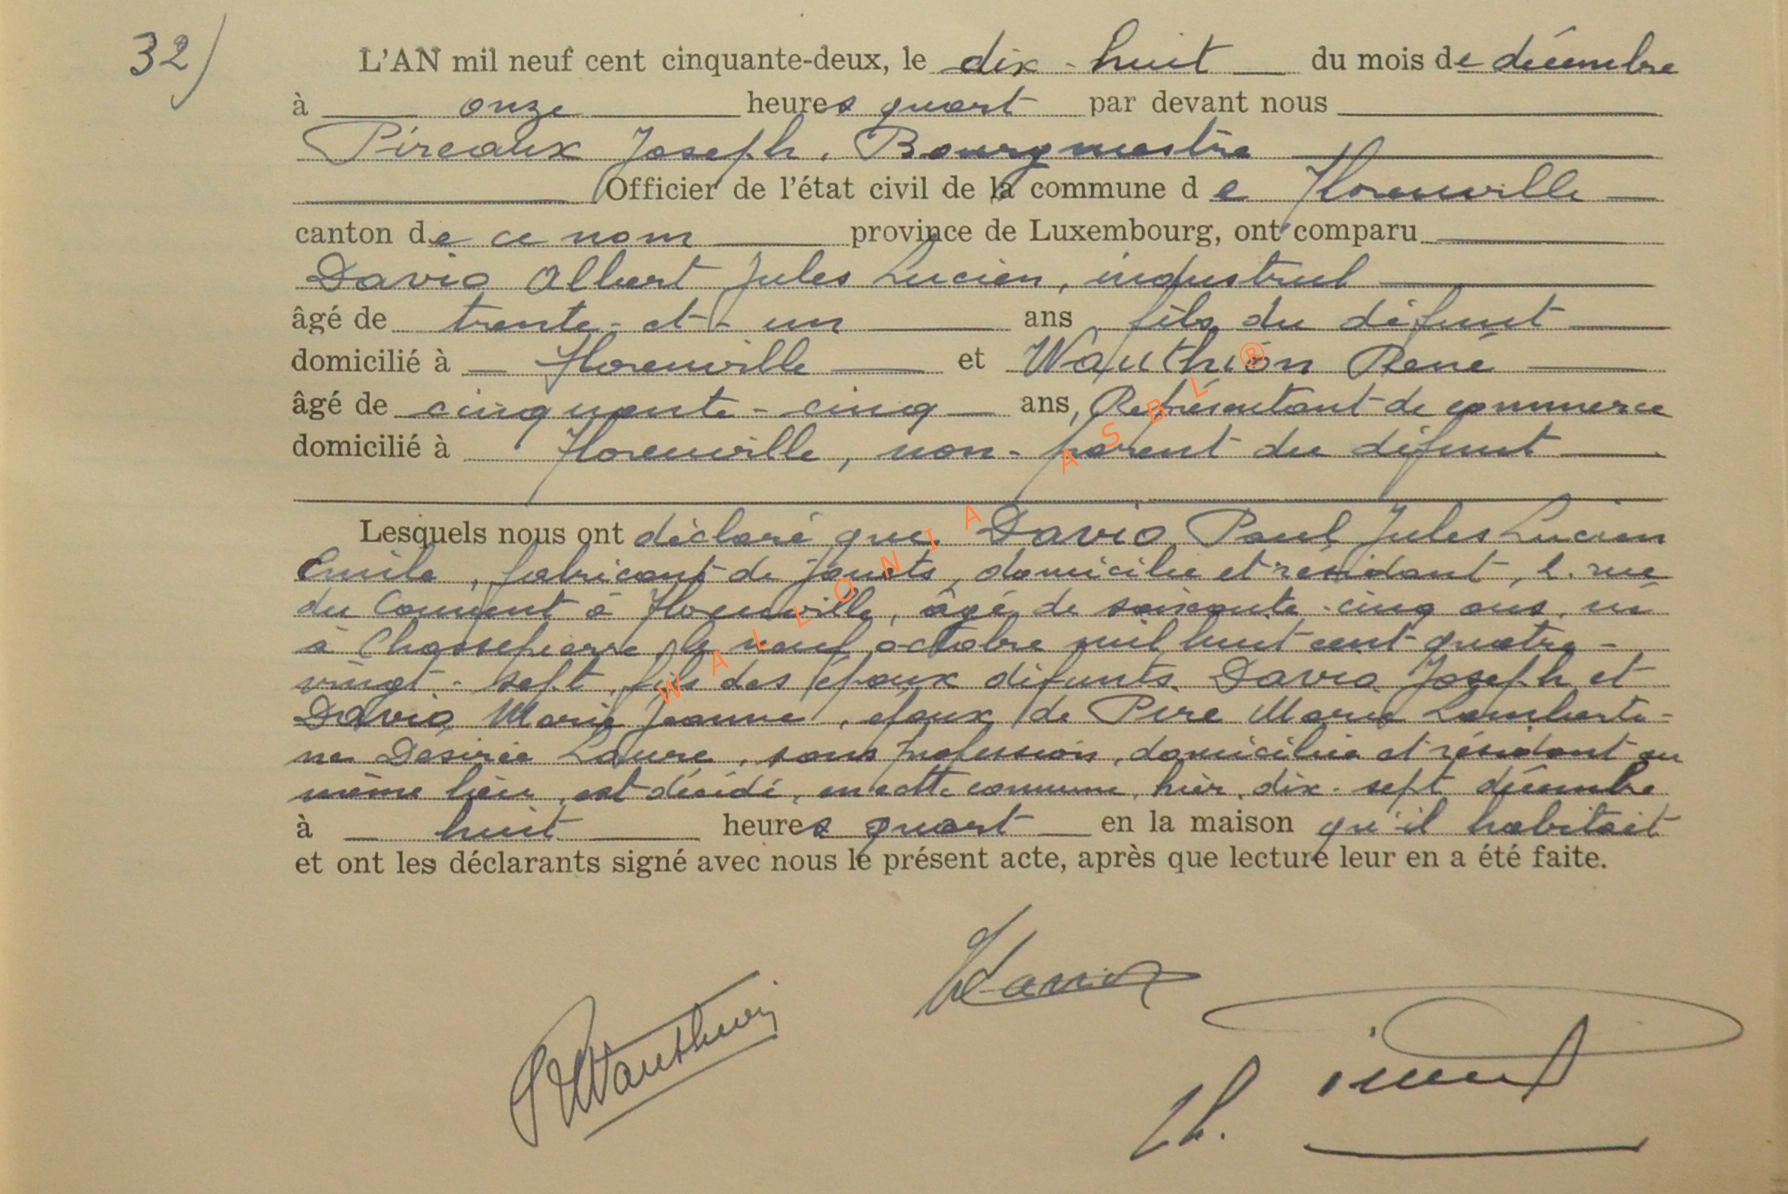 32)
L'AN mil neuf cent cinquante-deux, le dix-huit du mois de décembre
à onze heures quart par devant nous
Pireaux Joseph, Bourgmestre
Officier de l'état civil de la commune de Florenville
canton de ce nom province de Luxembourg, ont comparu
David Albert Jules Lucien, industriel
âgé de trente-et-un ans fils du défunt
domicilié à Florenville et Wauthion René
âgé de cinquante-cinq ans, Représentant de commerce
domicilié à Florenville, non-parent du défunt
Lesquels nous ont déclaré que David Paul Jules Lucien
Emile, fabricant de jouets, domicilié et résidant, 2. rue
du Couvent à Florenville, âgé de soixante-cinq ans, né
à Chassepierre le neuf octobre mil huit cent quatre-
vingt-sept, fils des époux défunts David Joseph et
David Marie Jeanne, époux de Pire Marie Lamberti-
ne Désirée Laure, sans profession, domiciliée et résidant au
même lieu, est décédé, en cette commune, hier, dix-sept décembre
à huit heures quart en la maison qu'il habitait
et ont les déclarants signé avec nous le présent acte, après que lecture leur en a été faite.
RWauthion
WALLONIA ASBL ®